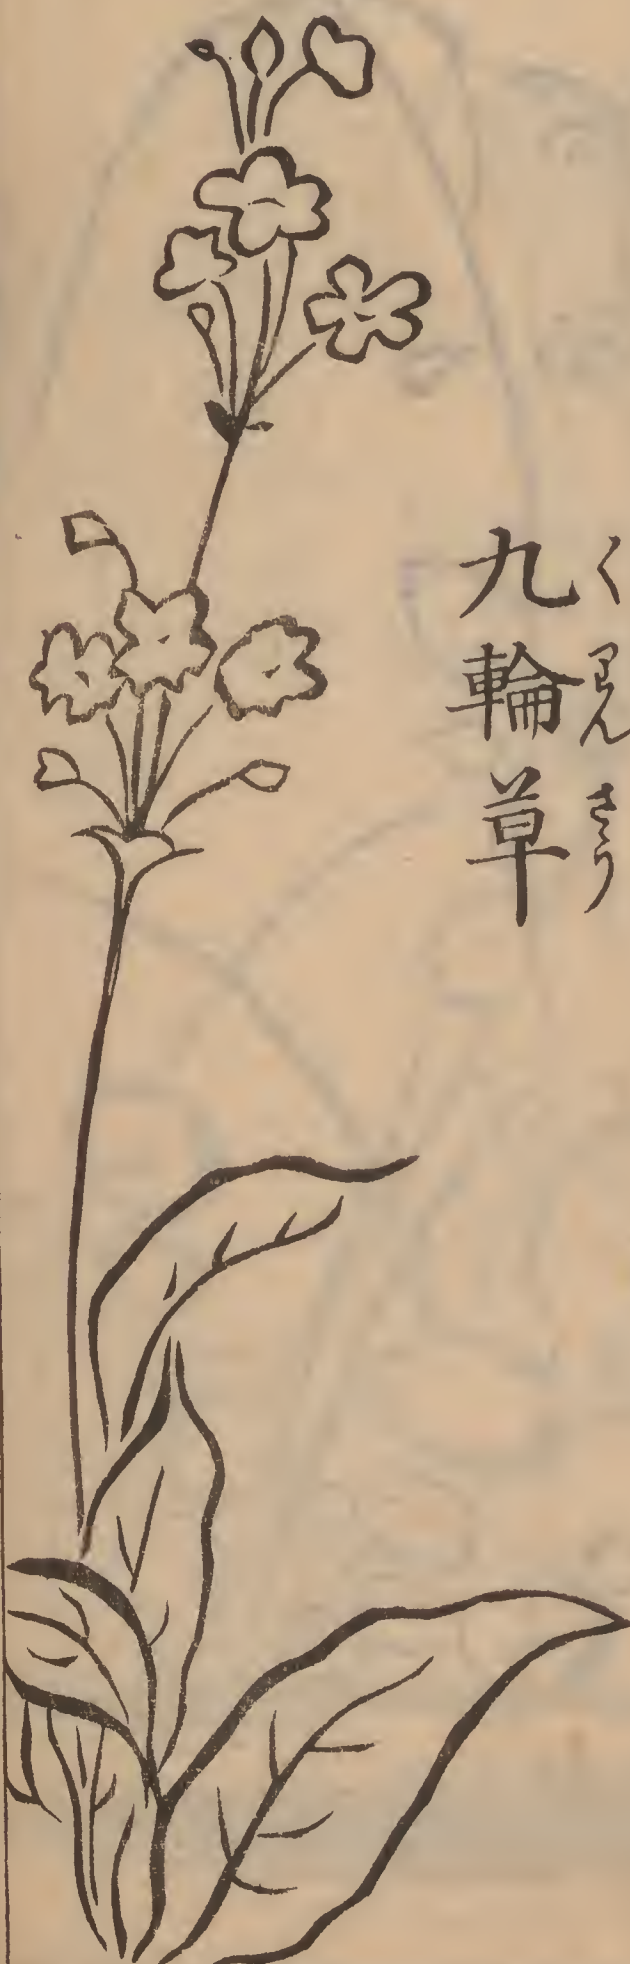 九輪草
くりんさう